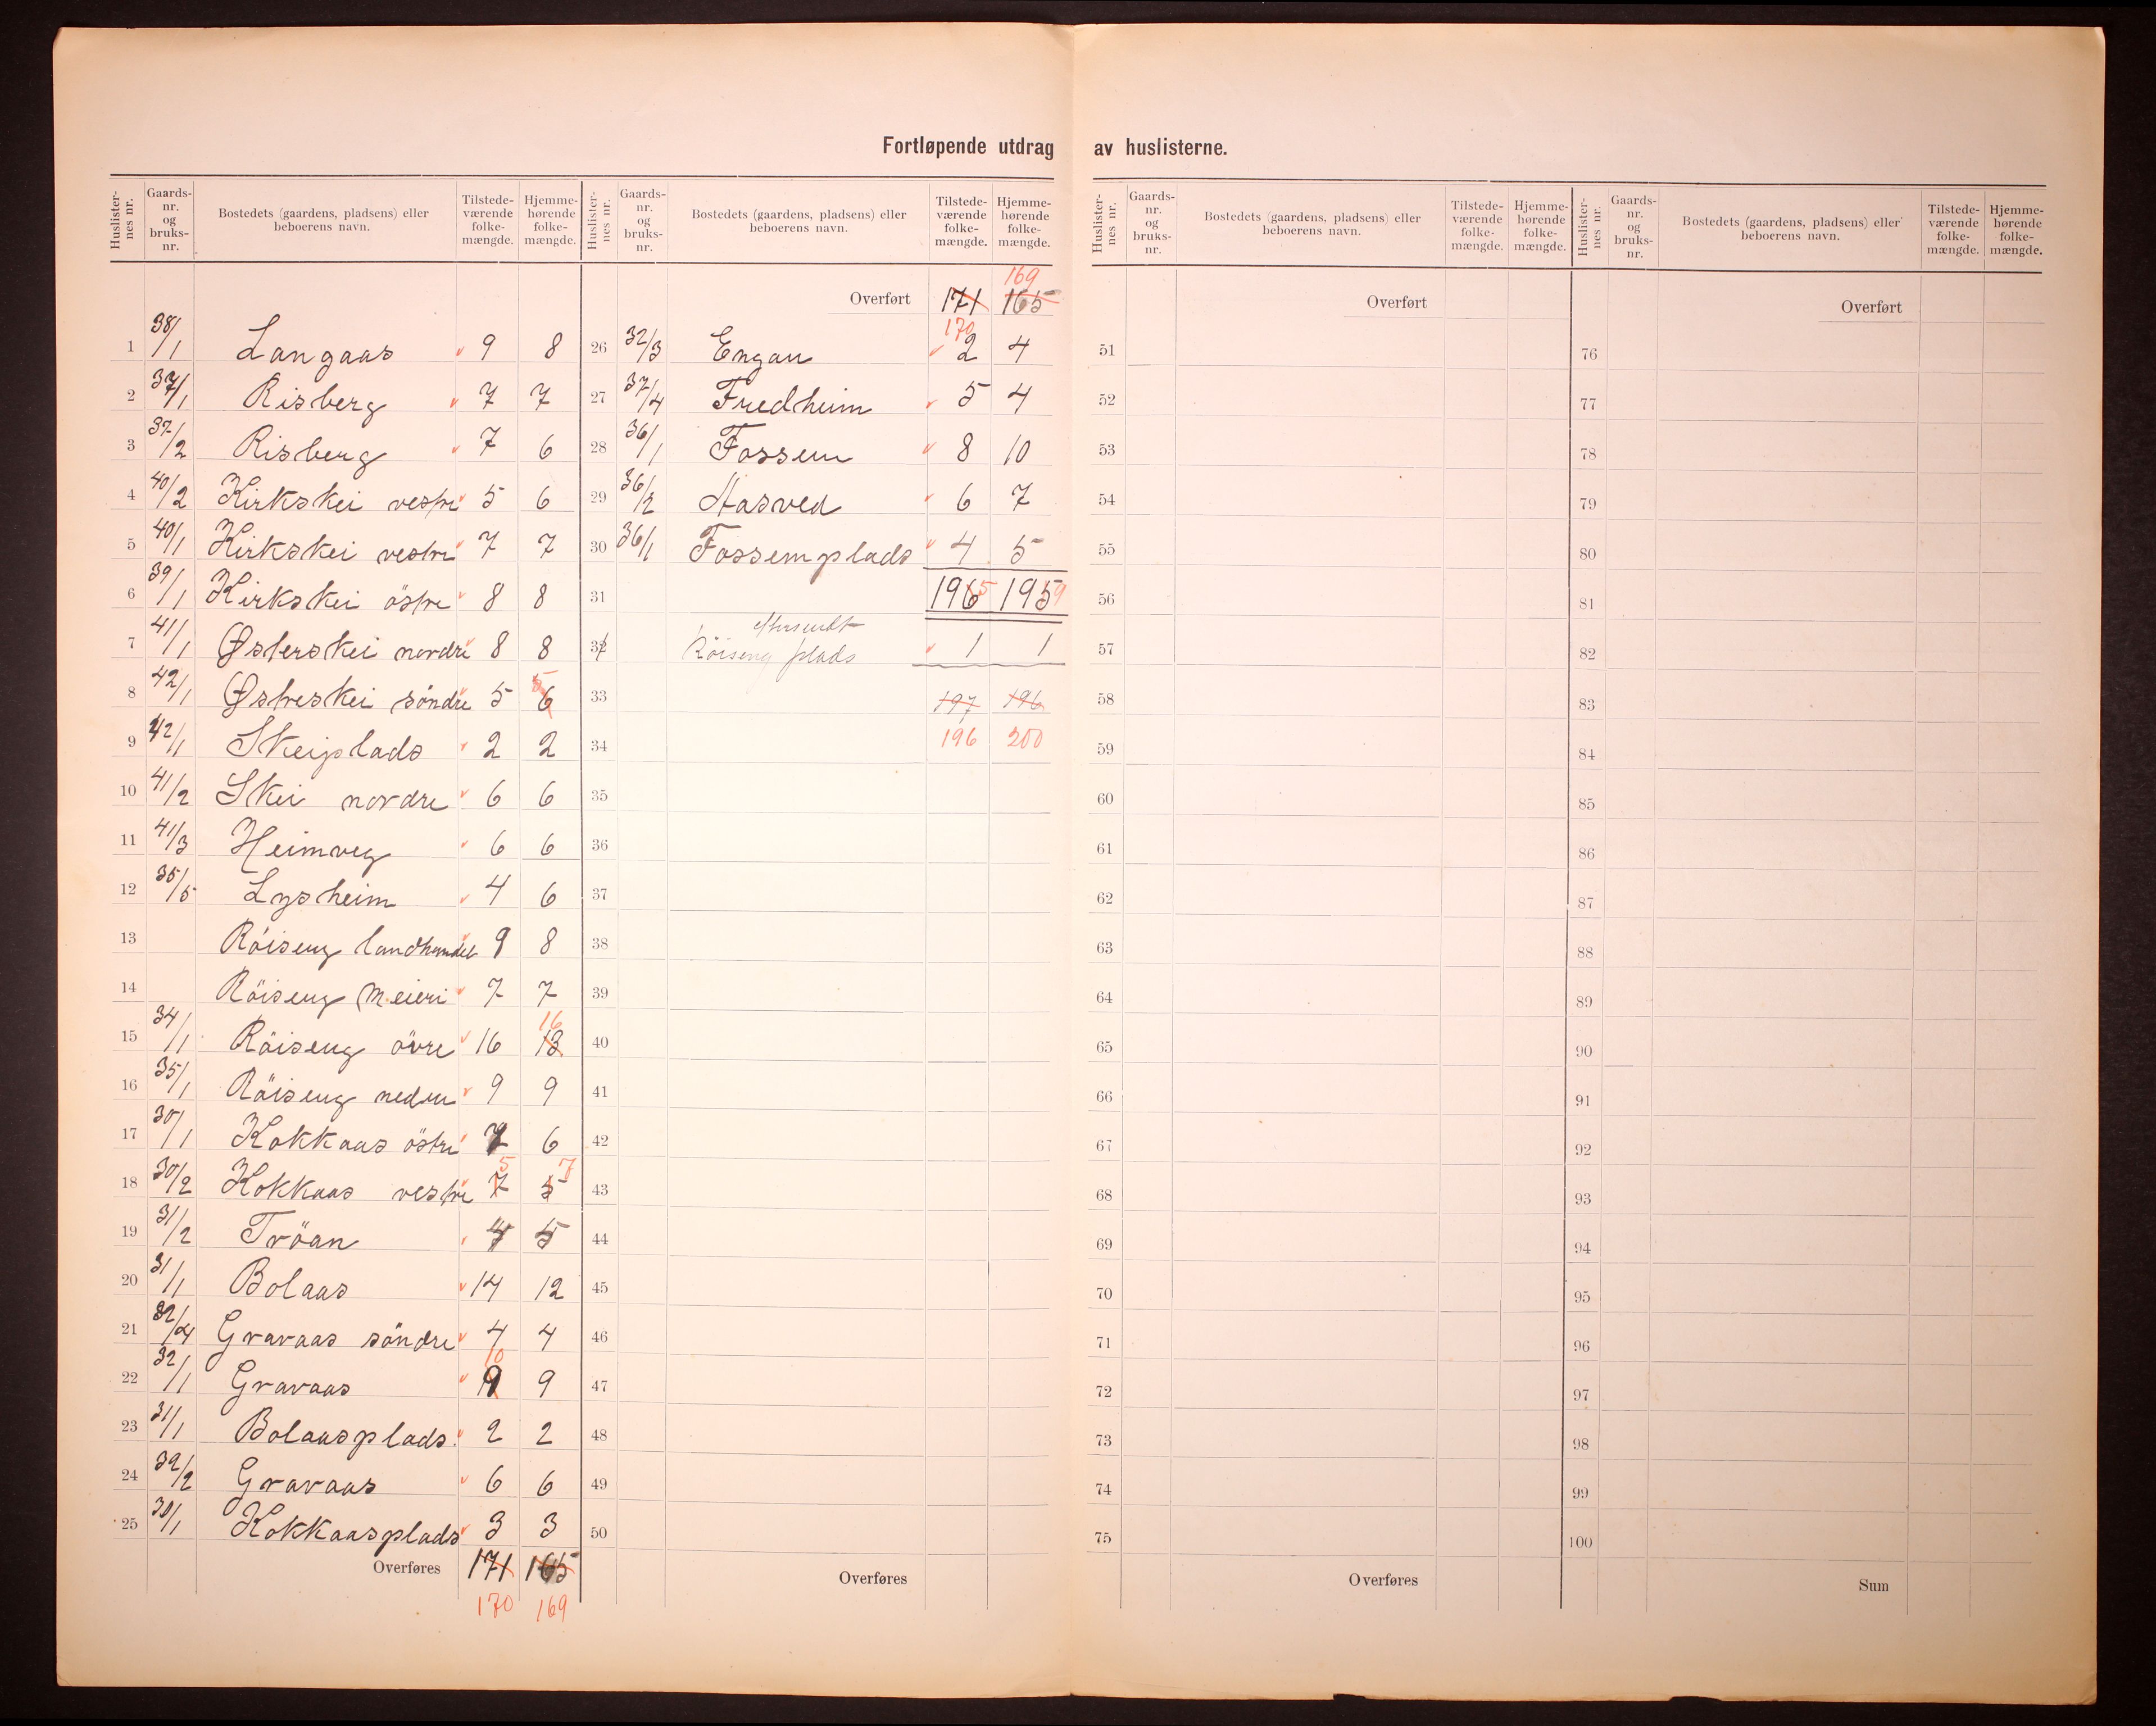 Fortløpende utdrag av huslisterne.
Huslisternes nr. Gaards-nr. og bruks-nr. Bostedets (gaardens, pladsens) eller beboerens navn. Tilstede-værende folke-mængde. Hjemme-hørende folke-mængde.
1 38/1 Langaas 9 8
2 37/1 Risberg 7 7
3 37/2 Risberg 7 6
4 40/2 Kirkskei vestre 5 6
5 40/1 Kirkskei vestre 7 7
6 39/1 Kirkskei östre 8 8
7 41/1 Østerskei nordre 8 8
8 42/1 Østreskei söndre 5 6 5
9 42/1 Skeiplads 2 2
10 41/2 Skei nordre 6 6
11 41/3 Heimveg 6 6
12 35/5 Lysheim 4 6
13 Röiseng landhandel 9 8
14 Röiseng Meieri 7 7
15 34/1 Röiseng övre 16 13 16
16 35/1 Röiseng nedre 9 9
17 30/1 Kokkaas östre 7 6
18 30/2 Kokkaas vestre 7 5 5 7
19 31/2 Tröan 4 5
20 31/1 Bolaas 14 12
21 32/4 Gravaas söndre 4 4
22 32/1 Gravaas 9 10 9
23 31/1 Bolaasplads 2 2
24 32/2 Gravaas 6 6
25 30/1 Kokkaasplads 3 3
Overføres 171 165
170 169
Huslisternes nr. Gaards-nr. og bruks-nr. Bostedets (gaardens, pladsens) eller beboerens navn. Tilstede-værende folke-mængde. Hjemme-hørende folke-mængde.
169
Overført 171 165
170
26 32/3 Engan 2 4
27 37/4 Fredheim 5 4
28 36/1 Fossem 8 10
29 36/2 Aasved 6 7
30 36/1 Fossemplads 4 5
31 196 5 195 9
eftersendt
32 Röiseng plads 1 1
33 197 196
34 196 200
35
36
37
38
39
40
41
42
43
44
45
46
47
48
49
50
Overføres
Huslisternes nr. Gaards-nr. og bruks-nr. Bostedets (gaardens, pladsens) eller beboerens navn. Tilstede-værende folke-mængde. Hjemme-hørende folke-mængde.
Overført
51
52
53
54
55
56
57
58
59
60
61
62
63
64
65
66
67
68
69
70
71
72
73
74
75
Overføres
Huslisternes nr. Gaards-nr. og bruks-nr. Bostedets (gaardens, pladsens) eller beboerens navn. Tilstede-værende folke-mængde. Hjemme-hørende folke-mængde.
Overført
76
77
78
79
80
81
82
83
84
85
86
87
88
89
90
91
92
93
94
95
96
97
98
99
100
Sum